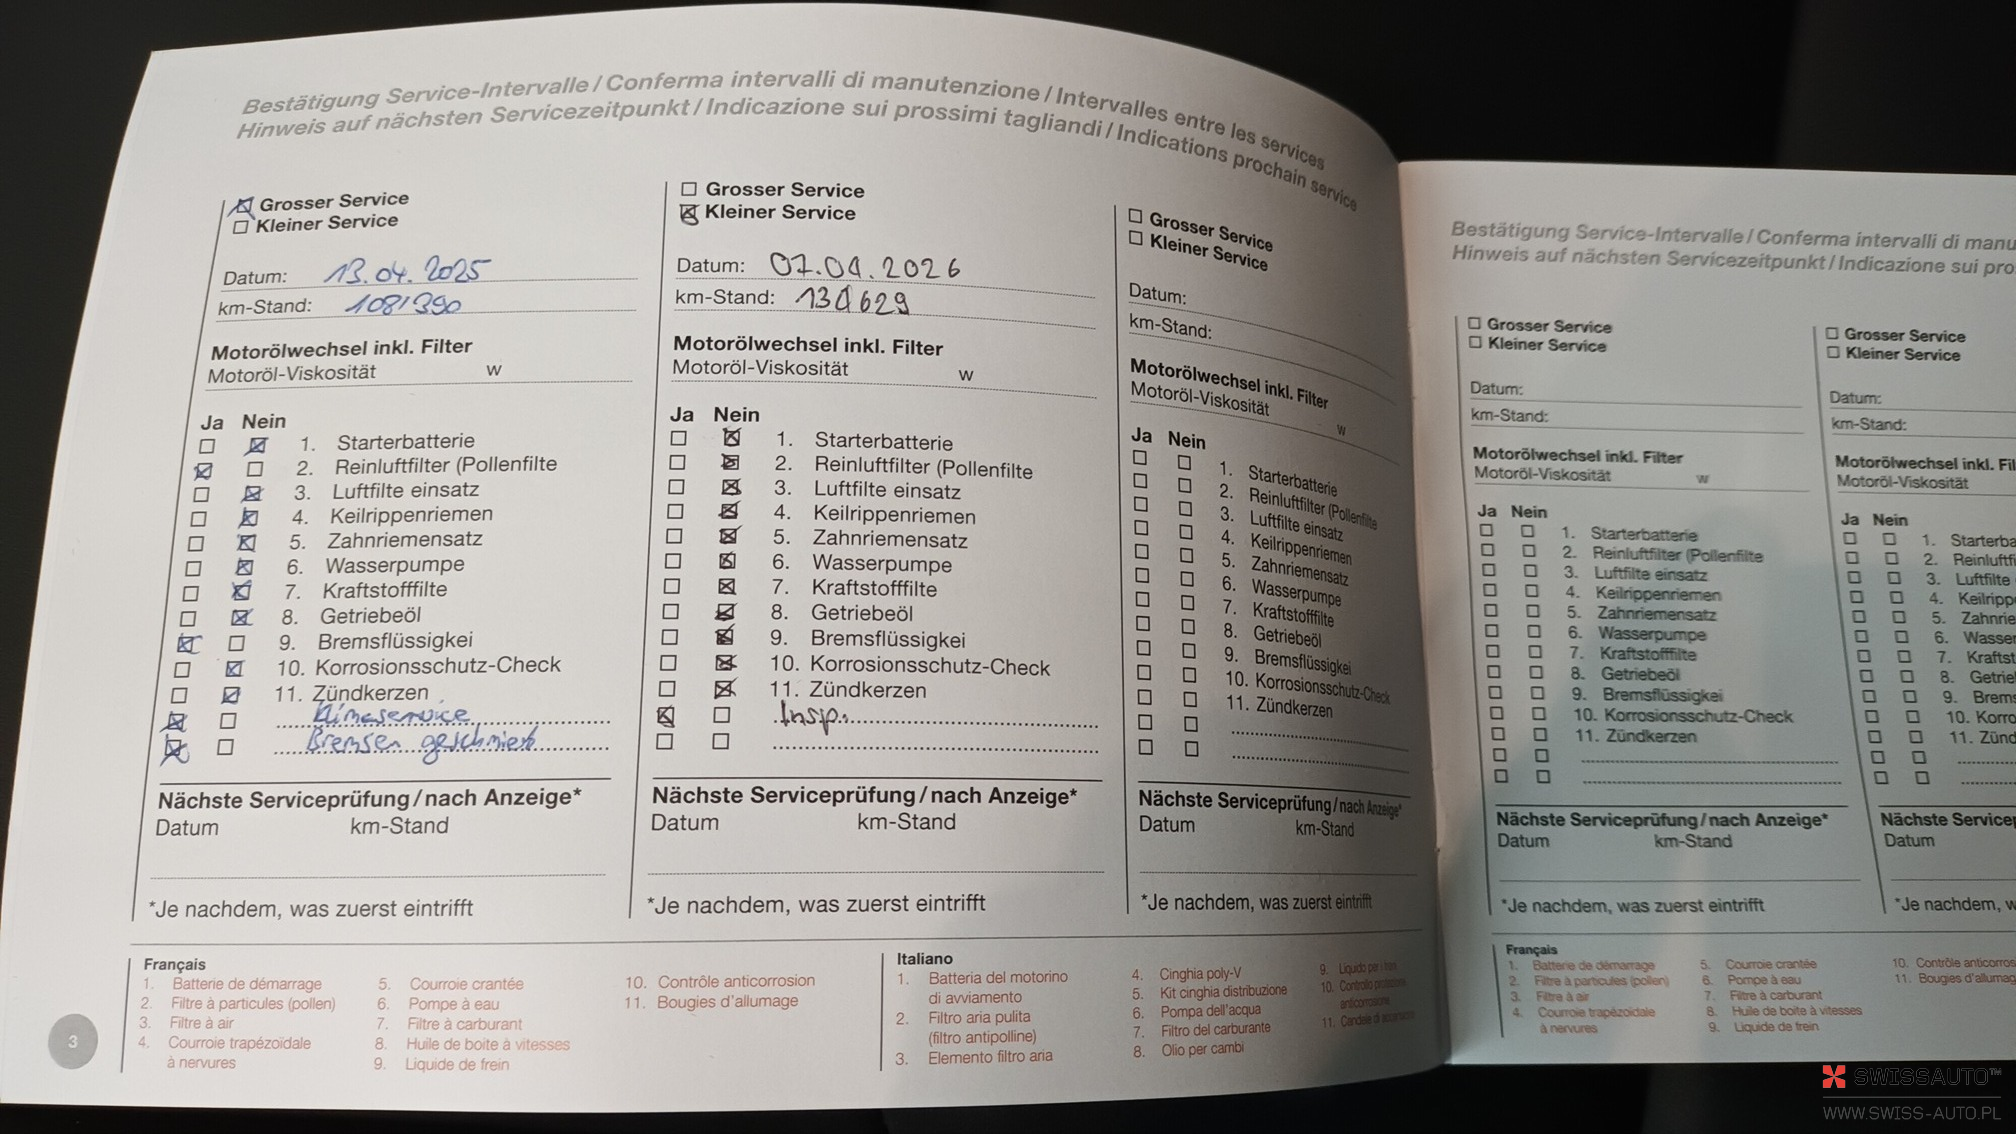 Bestätigung Service-Intervalle / Conferma intervalli di manutenzione / Intervalles entre les services
Hinweis auf nächsten Servicezeitpunkt / Indicazione sui prossimi tagliandi / Indications prochain service
Grosser Service
Kleiner Service
Datum: 13.04.2025
km-Stand: 108'390
Motorölwechsel inkl. Filter
Motoröl-Viskosität W
Ja Nein
1. Starterbatterie
2. Reinluftfilter (Pollenfilte
3. Luftfilte einsatz
4. Keilrippenriemen
5. Zahnriemensatz
6. Wasserpumpe
7. Kraftstofffilte
8. Getriebeöl
9. Bremsflüssigkei
10. Korrosionsschutz-Check
11. Zündkerzen
Klimaservice
Bremsen geschmiert
Nächste Serviceprüfung / nach Anzeige*
Datum km-Stand
*Je nachdem, was zuerst eintrifft
Grosser Service
Kleiner Service
Datum: 07.04.2026
km-Stand: 134629
Motorölwechsel inkl. Filter
Motoröl-Viskosität W
Ja Nein
1. Starterbatterie
2. Reinluftfilter (Pollenfilte
3. Luftfilte einsatz
4. Keilrippenriemen
5. Zahnriemensatz
6. Wasserpumpe
7. Kraftstofffilte
8. Getriebeöl
9. Bremsflüssigkei
10. Korrosionsschutz-Check
11. Zündkerzen
Insp.
Nächste Serviceprüfung / nach Anzeige*
Datum km-Stand
*Je nachdem, was zuerst eintrifft
Grosser Service
Kleiner Service
Datum:
km-Stand:
Motorölwechsel inkl. Filter
Motoröl-Viskosität W
Ja Nein
1. Starterbatterie
2. Reinluftfilter (Pollenfilte
3. Luftfilte einsatz
4. Keilrippenriemen
5. Zahnriemensatz
6. Wasserpumpe
7. Kraftstofffilte
8. Getriebeöl
9. Bremsflüssigkei
10. Korrosionsschutz-Check
11. Zündkerzen
Nächste Serviceprüfung / nach Anzeige*
Datum km-Stand
*Je nachdem, was zuerst eintrifft
Français
1. Batterie de démarrage
2. Filtre à particules (pollen)
3. Filtre à air
4. Courroie trapézoïdale
à nervures
5. Courroie crantée
6. Pompe à eau
7. Filtre à carburant
8. Huile de boite à vitesses
9. Liquide de frein
10. Contrôle anticorrosion
11. Bougies d'allumage
Italiano
1. Batteria del motorino
di avviamento
2. Filtro aria pulita
(filtro antipolline)
3. Elemento filtro aria
4. Cinghia poly-V
5. Kit cinghia distribuzione
6. Pompa dell'acqua
7. Filtro del carburante
8. Olio per cambi
9. Liquido per i freni
10. Controllo protezione
anticorrosione
11. Candele di accensione
3
Bestätigung Service-Intervalle / Conferma intervalli di manu
Hinweis auf nächsten Servicezeitpunkt / Indicazione sui pro
Grosser Service
Kleiner Service
Datum:
km-Stand:
Motorölwechsel inkl. Filter
Motoröl-Viskosität W
Ja Nein
1. Starterbatterie
2. Reinluftfilter (Pollenfilte
3. Luftfilte einsatz
4. Keilrippenriemen
5. Zahnriemensatz
6. Wasserpumpe
7. Kraftstofffilte
8. Getriebeöl
9. Bremsflüssigkei
10. Korrosionsschutz-Check
11. Zündkerzen
Nächste Serviceprüfung / nach Anzeige*
Datum km-Stand
*Je nachdem, was zuerst eintrifft
Grosser Service
Kleiner Service
Datum:
km-Stand:
Motorölwechsel inkl. Fil
Motoröl-Viskosität
Ja Nein
1. Starterba
2. Reinluftfi
3. Luftfilte
4. Keilripp
5. Zahnrie
6. Wasser
7. Kraftst
8. Getriel
9. Brems
10. Korro
11. Zünd
Nächste Service
Datum
*Je nachdem, w
Français
1. Batterie de démarrage
2. Filtre à particules (pollen)
3. Filtre à air
4. Courroie trapézoïdale
à nervures
5. Courroie crantée
6. Pompe à eau
7. Filtre à carburant
8. Huile de boite à vitesses
9. Liquide de frein
10. Contrôle anticorros
11. Bougies d'allumag
SWISSAUTO™
WWW.SWISS-AUTO.PL